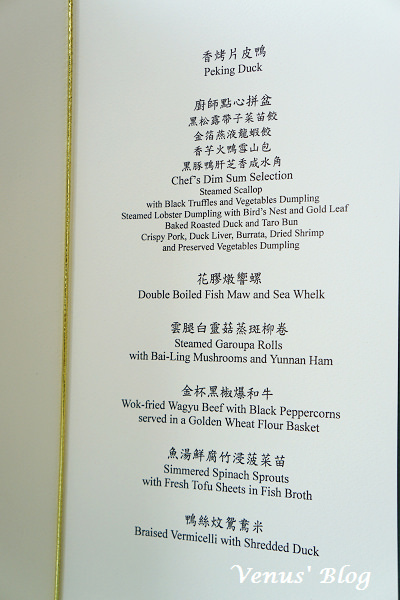 香烤片皮鴨
Peking Duck
廚師點心拼盆
黑松露帶子菜苗餃
金箔燕液龍蝦餃
香芋火鴨雪山包
黑豚鴨肝芝香咸水角
Chef's Dim Sum Selection
Steamed Scallop
with Black Truffles and Vegetables Dumpling
Steamed Lobster Dumpling with Bird's Nest and Gold Leaf
Baked Roasted Duck and Taro Bun
Crispy Pork, Duck Liver, Burrata, Dried Shrimp
and Preserved Vegetables Dumpling
花膠燉響螺
Double Boiled Fish Maw and Sea Whelk
雲腿白靈菇蒸斑柳卷
Steamed Garoupa Rolls
with Bai-Ling Mushrooms and Yunnan Ham
金杯黑椒爆和牛
Wok-fried Wagyu Beef with Black Peppercorns
served in a Golden Wheat Flour Basket
魚湯鮮腐竹浸菠菜苗
Simmered Spinach Sprouts
with Fresh Tofu Sheets in Fish Broth
鴨絲炆鴛鴦米
Braised Vermicelli with Shredded Duck
Venus' Blog